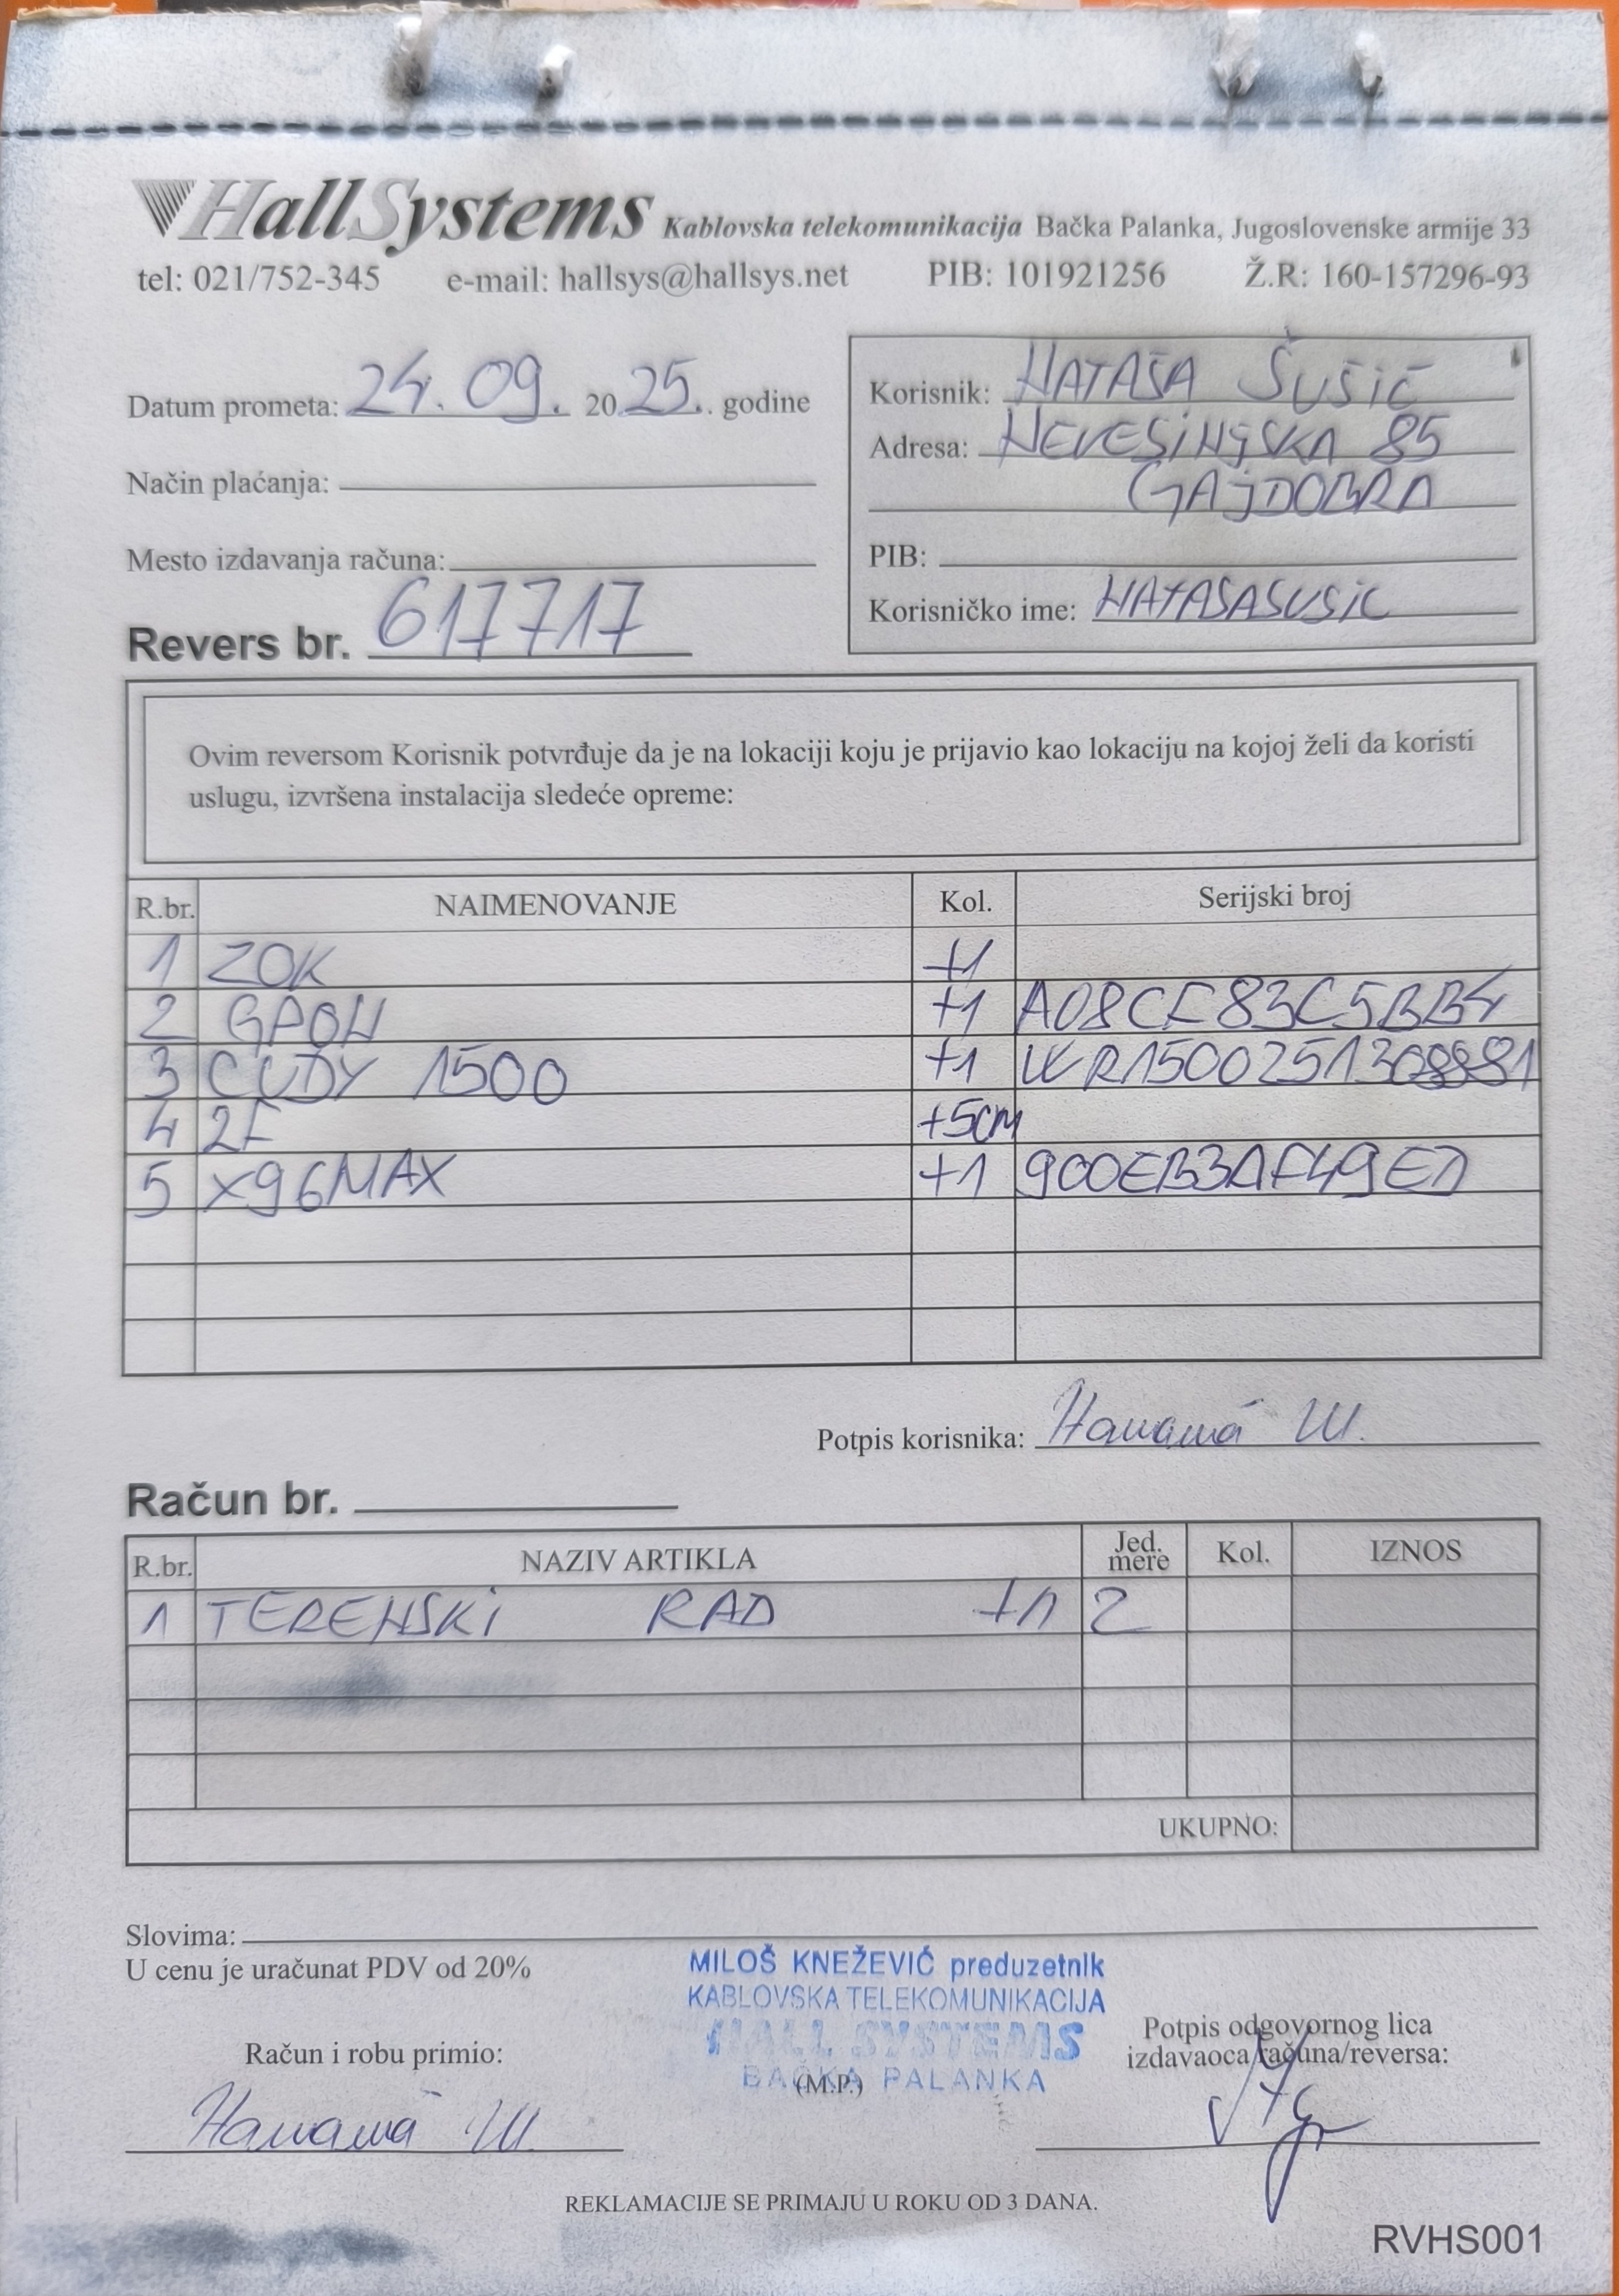 HallSystems Kablovska telekomunikacija Bačka Palanka, Jugoslovenske armije 33
tel: 021/752-345 e-mail: hallsys@hallsys.net PIB: 101921256 Ž.R: 160-157296-93
Datum prometa: 24.09. 2025. godine
Način plaćanja:
Mesto izdavanja računa:
Revers br. 617717
Korisnik: NATAŠA ŠUŠIĆ
Adresa: NEVESINJSKA 85
GAJDOBRA
PIB:
Korisničko ime: NATASASUSIC
Ovim reversom Korisnik potvrđuje da je na lokaciji koju je prijavio kao lokaciju na kojoj želi da koristi
uslugu, izvršena instalacija sledeće opreme:
R.br. NAIMENOVANJE Kol. Serijski broj
1 ZOK +1
2 GPON +1 A08CF83C5BB4
3 CUDY 1500 +1
4 2F +5CM
5 X96MAX +1
Potpis korisnika: Наташа Ш.
Račun br.
R.br. NAZIV ARTIKLA Jed. mere Kol. IZNOS
1 TERENSKI RAD +1 2
UKUPNO:
Slovima:
U cenu je uračunat PDV od 20%
MILOŠ KNEŽEVIĆ preduzetnik
KABLOVSKA TELEKOMUNIKACIJA
HALL SYSTEMS
BAČKA PALANKA
(M.P.)
Račun i robu primio:
Наташа Ш.
Potpis odgovornog lica
izdavaoca računa/reversa:
REKLAMACIJE SE PRIMAJU U ROKU OD 3 DANA.
RVHS001